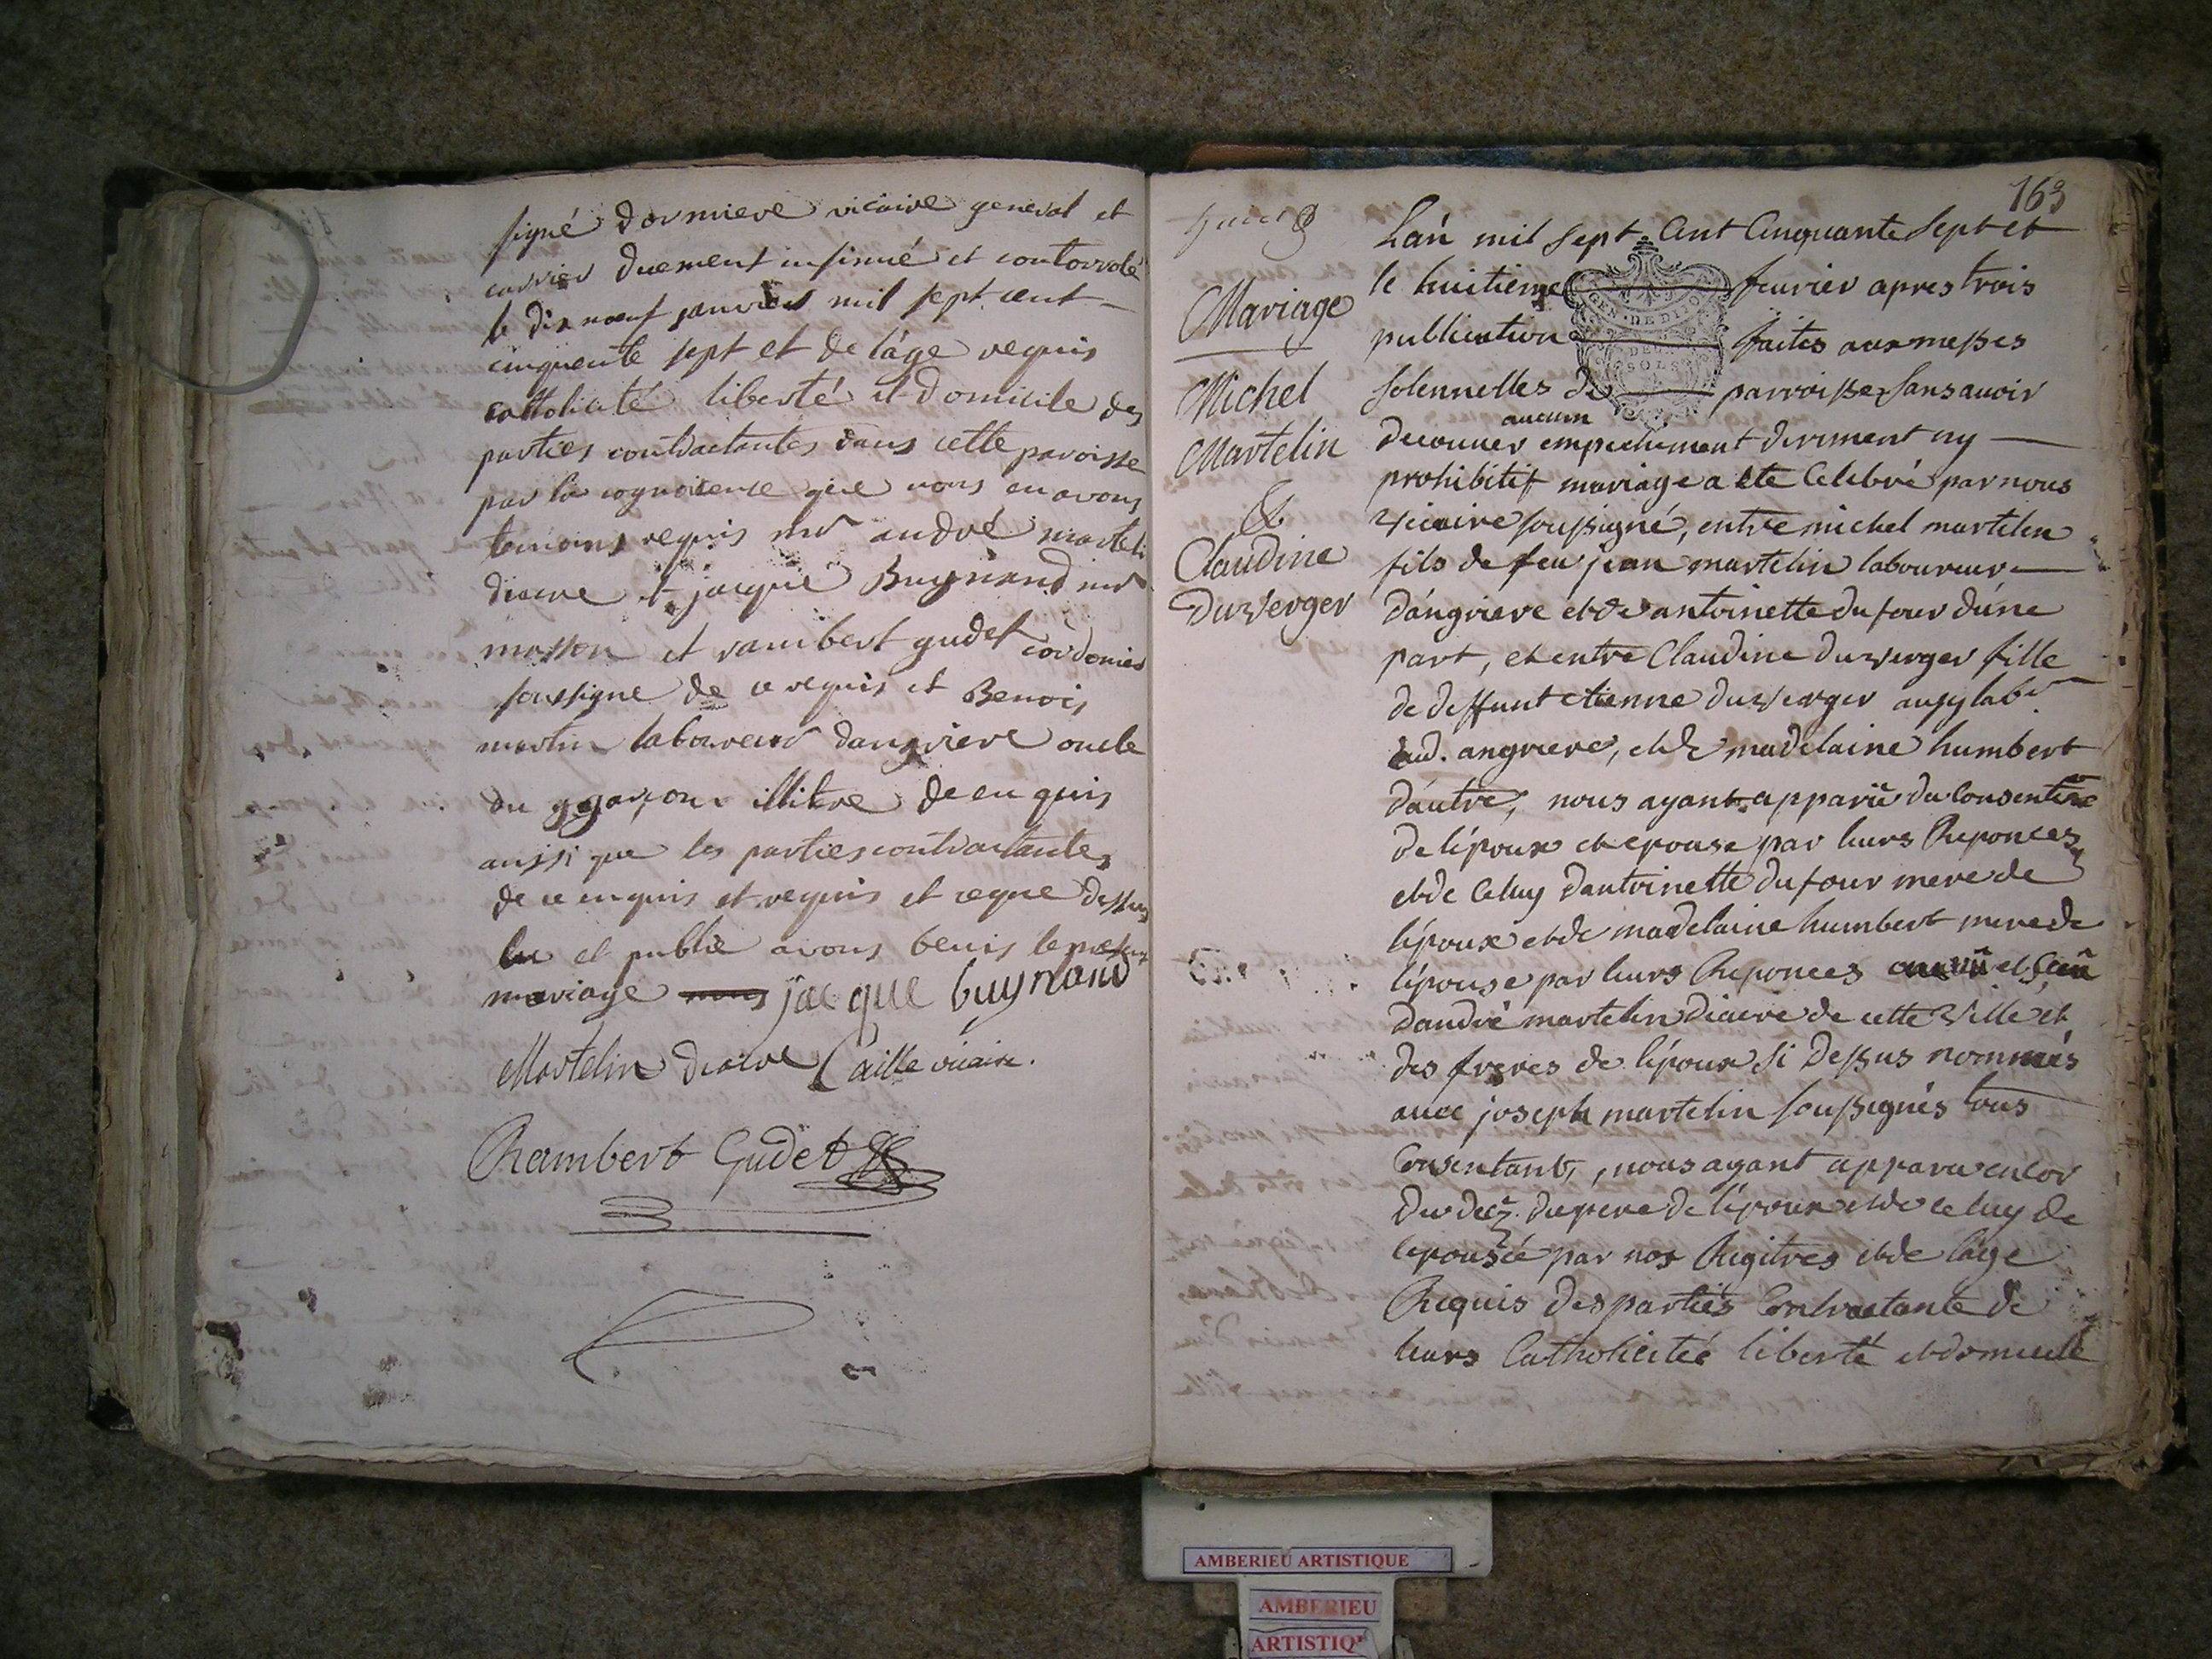 signé dormieve vicaire general et
cavvier duement insinué et contorrolé
le dix noeuf janvier mil sept cent
cinquente sept et de l'âge requis
cattolicité liberté et domicile des
parties contractantes dans cette paroisse
par la cognoicence que nous en avons
temoins requis mr andré martelin
diacre et jacque Buynand mr
masson et rambert gudet cordonier
soussigne de ce requis et Benois
martin laboureur dangriere oncle
du garçon illitere de en quis
aussi que les parties contractantes
de ce enquis et requis et ceque dessus
lu et publié avons benis le present
mariage jacque buynand
Martelin diacre Caille vicaire.
Rambert Gudet
163
Mariage
Michel
Martelin
&
Claudine
Duverger
L'an mil sept Cent Cinquante Sept et
le huitieme fevrier apres trois
publication faites aux messes
solennelles de parroisse sans avoir
aucun
decouver empechement diriment ny
prohibitif mariage a ete Celebré par nous
vicaire soussigné, entre michel martelin
fils de feu jean martelin laboureur
d'angriere et de antoinette du four d'une
part, et entre Claudine duverger fille
de deffunt etienne duverger aussy labr
aud. angriere, et de madelaine humbert
d'autre, nous ayant apparu du Consentem
de l'époux et epouse par leurs Reponces
et de Celuy dantoinette du four mere de
l'époux et de madelaine humbert mere de
l'épouse par leurs Reponces et
d'andré martelin diacre de cette Ville et
des freres de l'époux si dessus nommés
avec joseph martelin soussignés tous
Consentants, nous ayant apparu encor
du decz. du pere de l'époux et de celuy de
l'epousée par nos Regitres et de l'age
Requis des parties Contractante de
leurs Catholicitée liberté et domicile
GEN. DE DIJON
DEUX
SOLS
AMBERIEU ARTISTIQUE
AMBERIEU
ARTISTIQ